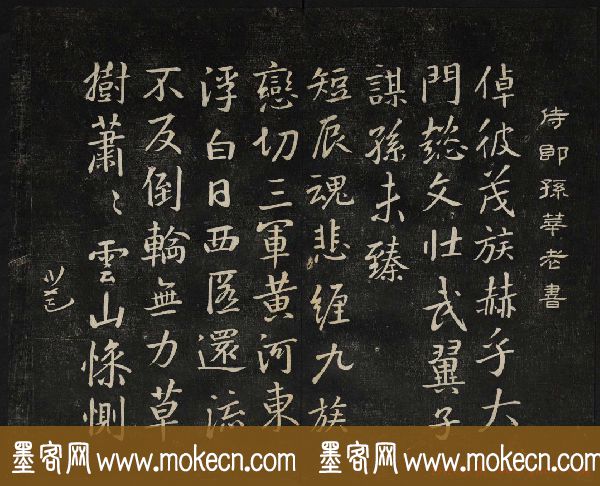 侍郎孫莘老書
倬彼茂族赫乎大
門懿文壯武翼子
謀孫未臻
短辰魂悲纏九族
戀切三軍黃河東
浮白日西匿還流
不反倒輪無力草
樹蕭〻雲山慘惻
墨客网 www.mokecn.com 墨客网 www.mokecn.com